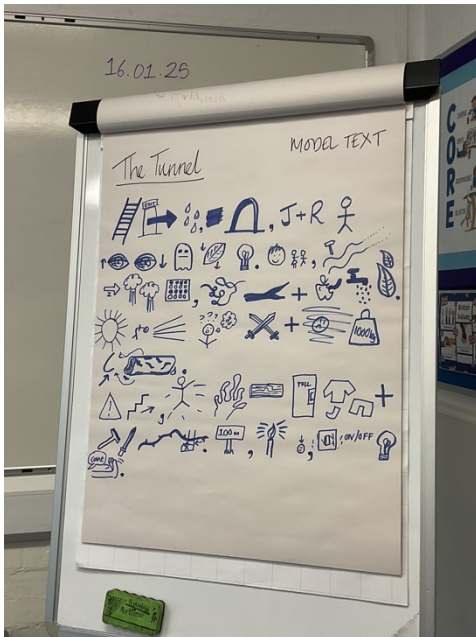 16.01.25
The Tunnel
MODEL TEXT
EXIT
J+R
+
1000kg
+
PULL
+
100m
ON/OFF
CORE